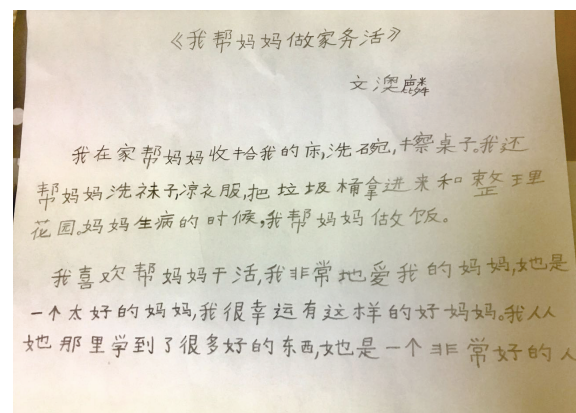 《我帮妈妈做家务活》
文澳麟
我在家帮妈妈收拾我的床,洗碗,擦桌子。我还
帮妈妈洗袜子,凉衣服,把垃圾桶拿进来和整理
花园。妈妈生病的时候,我帮妈妈做饭。
我喜欢帮妈妈干活,我非常地爱我的妈妈,她也是
一个太好的妈妈,我很幸运有这样的好妈妈。我从
她那里学到了很多好的东西,她也是一个非常好的人